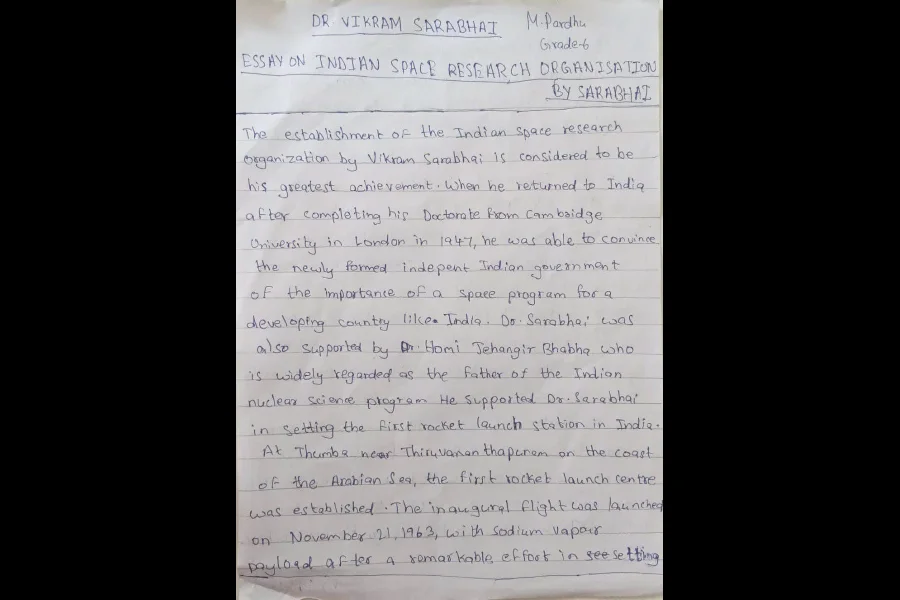 DR VIKRAM SARABHAI
M. Pardhu
Grade-6
ESSAY ON INDIAN SPACE RESEARCH ORGANISATION
BY SARABHAI
The establishment of the Indian space research
organization by Vikram Sarabhai is considered to be
his greatest achievement. When he returned to India
after completing his Doctorate from Cambridge
University in London in 1947, he was able to convince
the newly formed indepent Indian government
of the importance of a space program for a
developing country like India. Dr. Sarabhai was
also supported by Dr. Homi Jehangir Bhabha who
is widely regarded as the father of the Indian
nuclear science program He supported Dr. Sarabhai
in setting the first rocket launch station in India.
At Thumba near Thiruvananthapuram on the coast
of the Arabian Sea, the first rocket launch centre
was established. The inaugural flight was launched
on November 21, 1963, with sodium vapour
payload after a remarkable effort in see setting